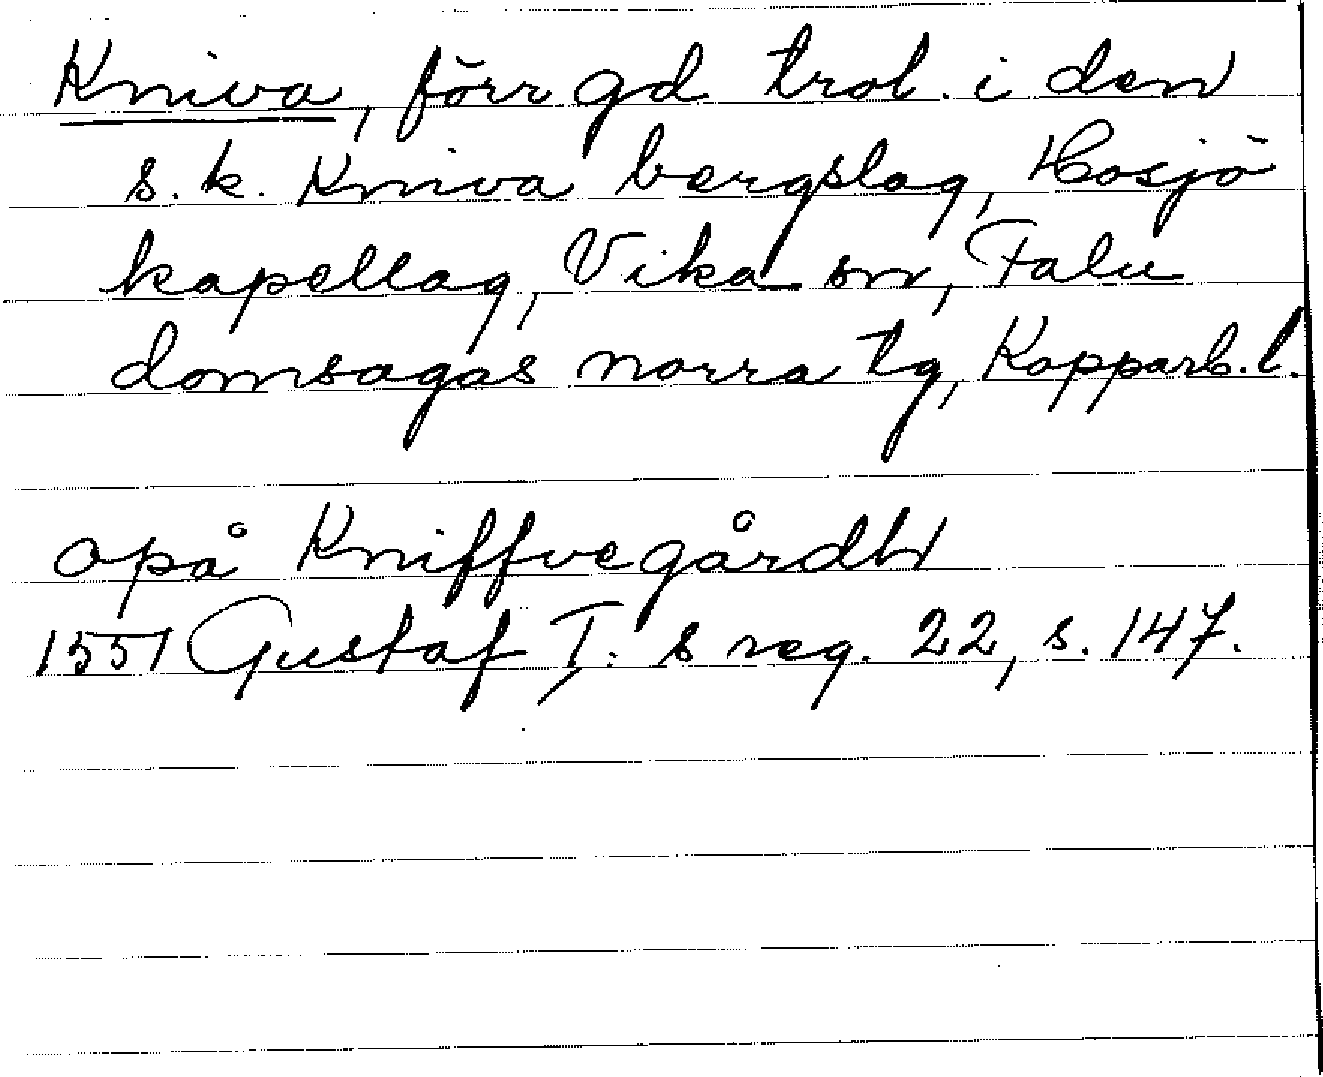 Kniva, förr gd trol. i den
s.k. Kniva bergslag, Hosjö
kapellag, Vika sn, Falu
domsagas norra tg, Kopparb. l.
opå Kniffvegårdh
1551 Gustaf I:s reg. 22, s. 147.